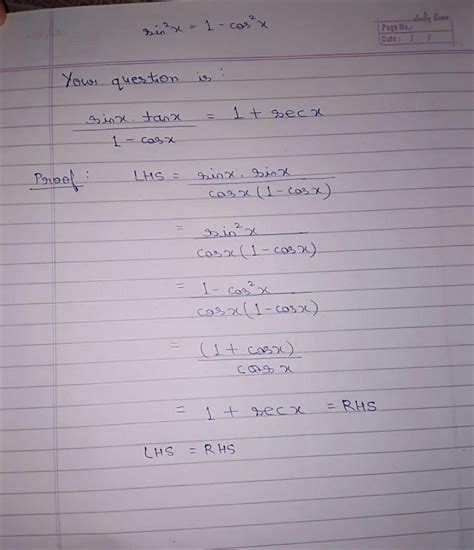 sin²x = 1 - cos²x
Page No.:
Date: / /
Your question is :
sinx . tanx / 1 - cosx = 1 + secx
Proof : LHS = sinx . sinx / cosx (1 - cosx)
= sin²x / cosx (1 - cosx)
= 1 - cos²x / cosx (1 - cosx)
= (1 + cosx) / cosx
= 1 + secx = RHS
LHS = RHS